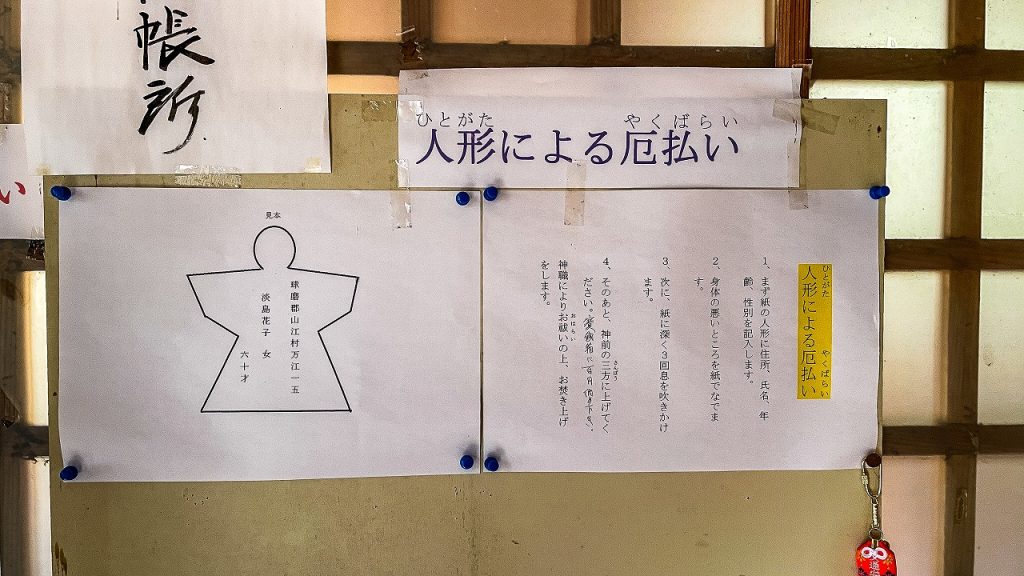 帳所
い
ひとがた やくばらい
人形による厄払い
見本
球磨郡山江村万江一五
淡島花子 女
六十才
ひとがた やくばらい
人形による厄払い
1、まず紙の人形に住所、氏名、年
齢、性別を記入します。
2、身体の悪いところを紙でなでま
す。
3、次に、紙に深く3回息を吹きかけ
ます。
さんぽう
4、そのあと、神前の三方に上げてく
ださい。
おはらい
神職によりお祓いの上、お焚き上げ
をします。